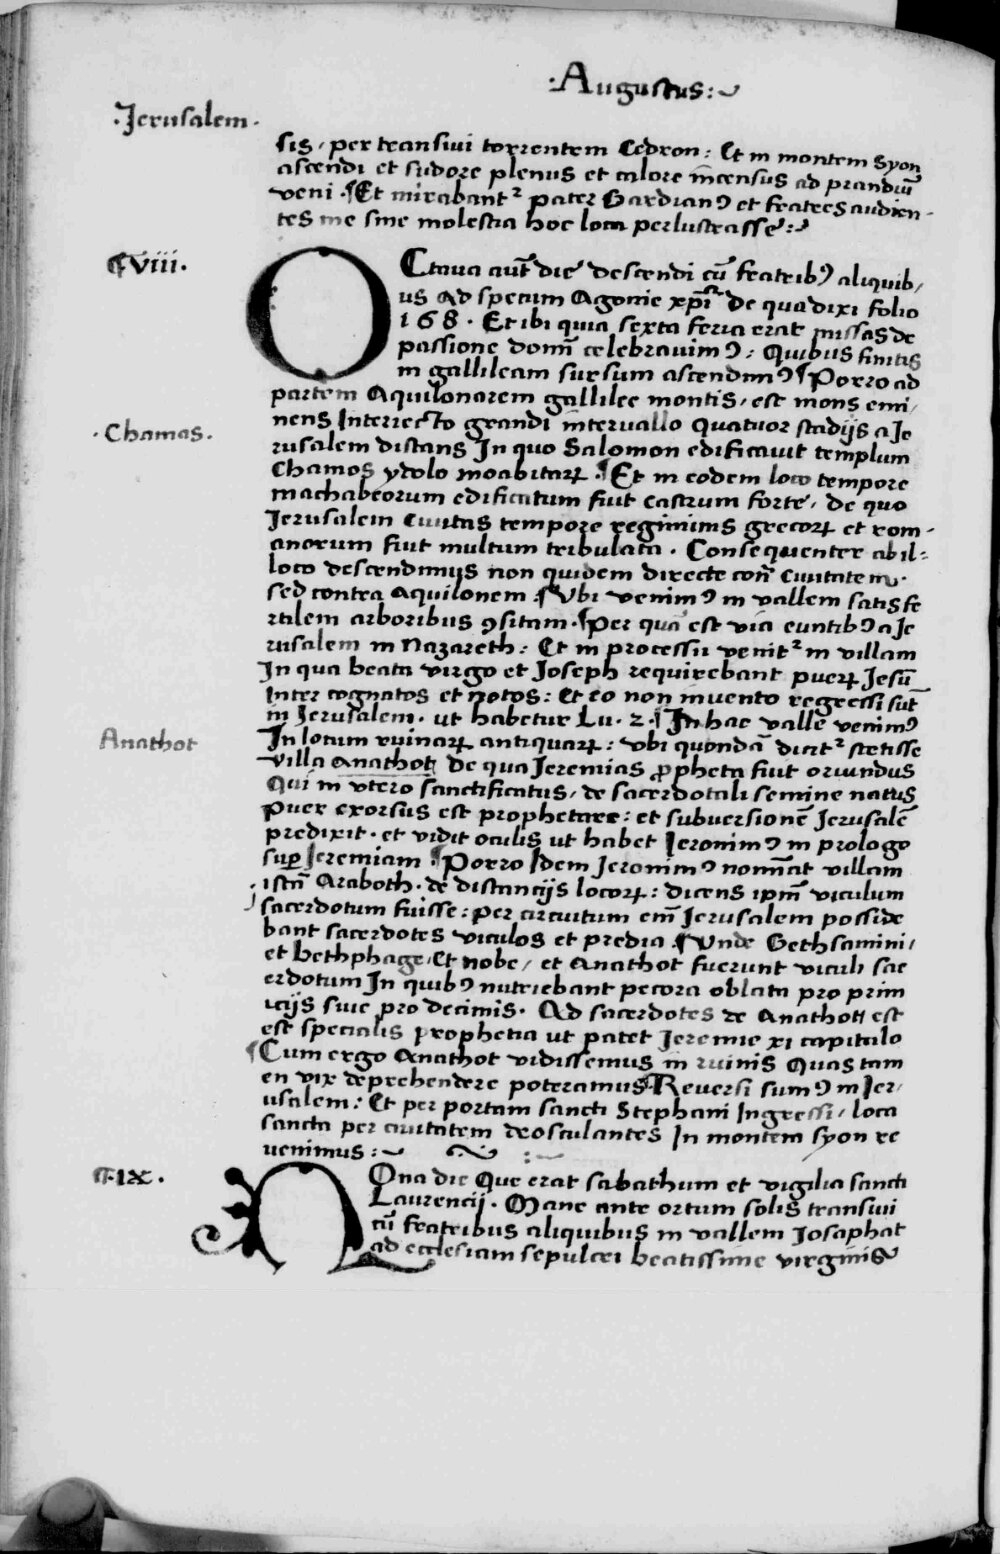 ·Augustus:~
·Jerusalem·
sis, per transivi torrentem Cedron: Et in montem Syon
ascendi et sudore plenus et calore incensus ad prandiū
veni ¶ Et mirabant᷑ pater Gardianꝰ et fratres audien-
tes me sine molestia hoc loca perlustrasse:~
¶Viii.
OCtava aūt die descendi cū fratribꝰ aliquib,
us ad specum Agonie xp̄i de qua dixi folio
168. Et ibi quia sexta feria erat missas de
passione domī celebravimꝰ: Quibus finitis
in gallileam sursum ascendimꝰ ¶ Porro ad
partem Aquilonarem gallilee montis, est mons emi,
nens Interiecto grandi intervallo Quatuor stadijs a Je
·Chamos·
rusalem distans In quo Salomon edificavit templum
Chamos ydolo moabitaꝝ ¶ Et in eodem loco tempore
machabeorum edificatum fuit castrum forte, de quo
Jerusalem Civitas tempore regiminis grecoꝝ et rom-
anorum fuit multum tribulata. Consequenter ab il=
loco descendimus non quidem directe cont͞ Civitatem.
sed contra Aquilonem ¶ Ubi venimꝰ in vallem satis fe
rtilem arboribus ꝯsitam ¶ Per quā est via euntibꝰ a Je
rusalem in Nazareth: Et in processu venit᷑ in villam
In qua beata virgo et Joseph requirebant pueꝝ Jesū
Inter cognatos et notos: Et eo non invento regressi sūt
in Jerusalem. ut habetur Lu. 2. ¶ In hac valle venimꝰ
Anathot
In locum ruinaꝝ antiquaꝝ: ubi quondā dicit᷑ stetisse
villa Anathoth de qua Jeremias ꝓpheta fuit oriundus
Qui in utero sanctificatus, de sacerdotali semine natus
Puer exorsus est prophetare: et subversionē Jerusalē
predixit. et vidit oculis ut habet Jeronimꝰ in prologo
suꝑ Jeremiam ¶ Porro Idem Jeronimꝰ nomīat villam
istā Araboth. de distancijs locoꝝ: dicens ipm̄ viculum
sacerdotum fuisse: per circuitum em̄ Jerusalem posside
bant sacerdotes viculos et predia ¶ Unde Gethsamini,
et bethphage, Et nobe, et Anathot fuerunt viculi sac
erdotum In quibꝰ nutriebant pecora oblata pro prim
icijs sive pro decimis. Ad sacerdotes de Anathoth est
est specialis prophetia ut patet Jeremie xi capitulo
¶ Cum ergo Anathot vidissemus in ruinis Quas tam
en vix deprehendere poteramus ¶ Reversi sumꝰ in Jer,
usalem: Et per portam sancti Stephani Ingressi, loca
sancta per civitatem deosculantes In montem syon re
venimus:~
¶·ix·
NOna die Que erat sabathum et vigilia sancti
Laurencij. Mane ante ortum solis transivi
cū fratribus aliquibus in vallem Josaphat
ad ecclesiam sepulcri beatissime virginis